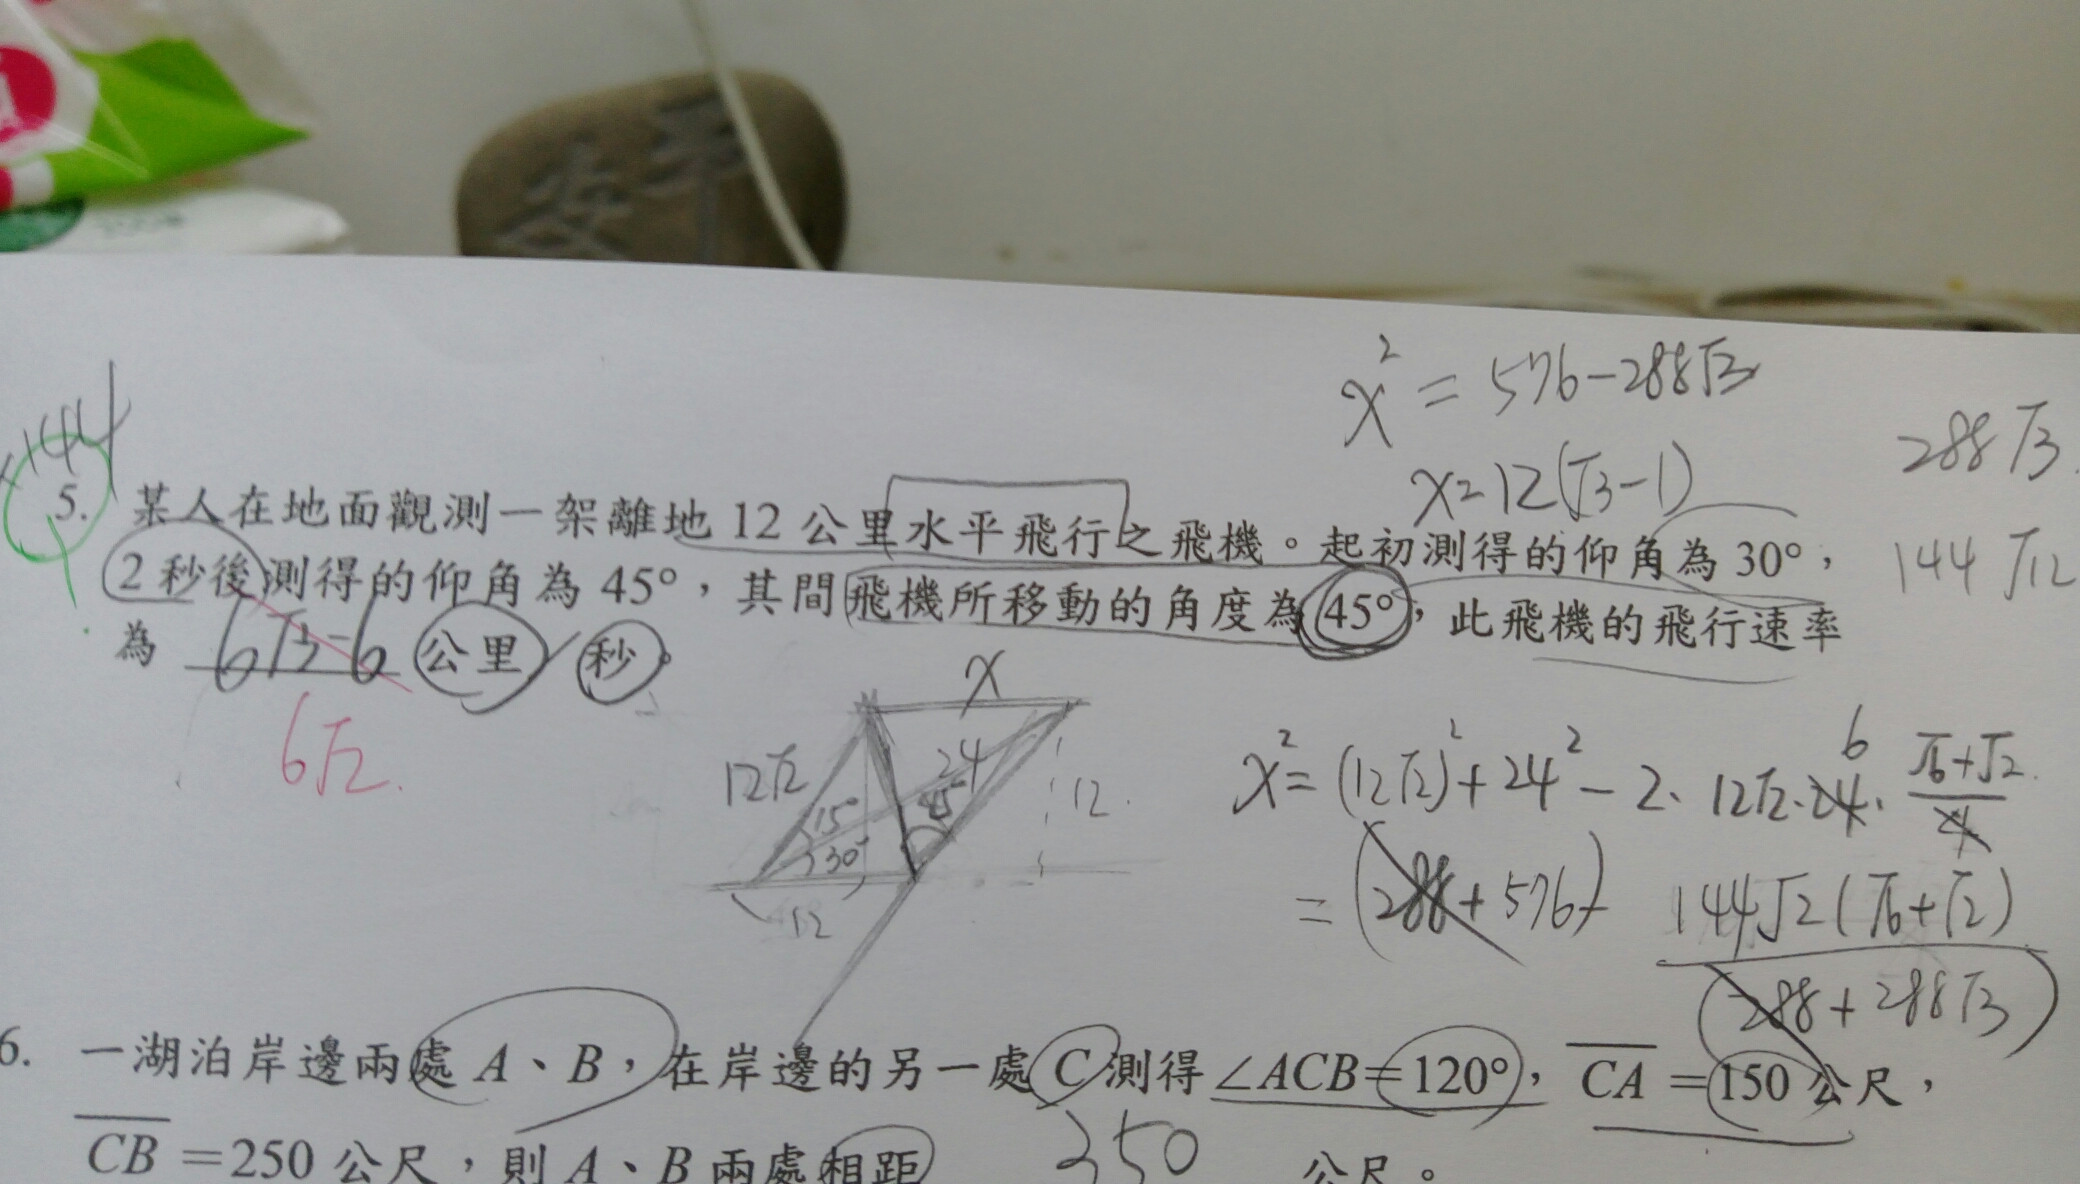 平安
x² = 576-288√3
x=12(√3-1)
288√3
144√12
144
5. 某人在地面觀測一架離地 12 公里水平飛行之飛機。起初測得的仰角為 30°，
2 秒後測得的仰角為 45°，其間飛機所移動的角度為 45°，此飛機的飛行速率
為 6√3-6 公里／秒。
6√2.
x
12√2
24
15°
45°
30°
12
12.
x²=(12√2)²+24²-2·12√2·24·(√6+√2)/4
6
=(288+576)-144√2(√6+√2)
288+288√3
6. 一湖泊岸邊兩處 A、B，在岸邊的另一處 C 測得∠ACB=120°，CA=150 公尺，
CB=250 公尺，則 A、B 兩處相距 350 公尺。